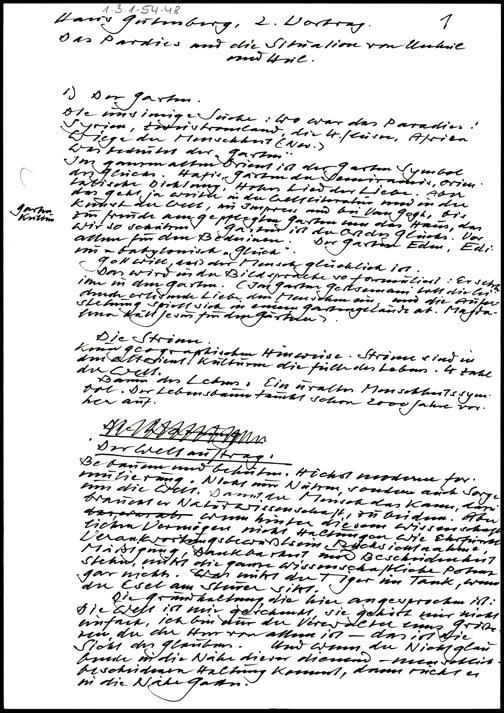 1.3.1.54.48
Hans Gutenberg, 2. Vortrag. 1
Das Paradies und die Situation von Unheil
und Heil.
1) Der Garten.
Die unsinnige Suche: Wo war das Paradies?
Syrien, Zweistromland, die 4 Flüsse, Afrika
Wiege der Menschheit (Nov.)
Was bedeutet der "Garten".
Im ganzen alten Orient ist der Garten Symbol
des Glücks. Hafis, Gärten der Semiramis, orien-
talische Dichtung, Hohes Lied der Liebe. Aber
das geht ja weiter in der Weltliteratur und in der
Kunst der Welt, und bis Van Gogh, bis
zur Freude am gepflegten Garten um das Haus, das
wir so schätzen. Garten ist der Ort des Glücks. Vor
allem für den Beduinen. Der Garten Eden, Edi-
nu = babylonisch Glück.
Garten
Kultur
Gott will, dass der Mensch glücklich ist.
Das wird in der Bildsprache so formuliert: Er schuf
ihn in den Garten. (Im Garten Getsemani holt die Gott
erlösende Liebe den Menschen ein, und die Aufer-
stehung spielt sich in einem Gartengelände ab. Magda-
lena hält Jesus für den Gärtner).
Die Ströme.
Keine geographischen Hinweise. Ströme sind in
den altorient. Kulturen die Fülle des Lebens. 4 Zahl
der Welt.
Baum des Lebens: Ein uraltes Menschheitssym-
bol. Der Lebensbaum taucht schon 2000 Jahre vor-
her auf.
Der Weltauftrag.
Bebauen und behüten. Höchst moderne For-
mulierung. Nicht nur Nutzen, sondern auch Sorge
um die Welt. Damit der Mensch das kann, dazu
braucht er Naturwissenschaft, zu bilden. Aber
wenn hinter diesem wissenschaft-
lichen Vermögen nicht Haltungen wie Ehrfurcht
Verantwortungsbewußtsein, Rücksichtnahme,
Mäßigung, Dankbarkeit und Bescheidenheit
stehn, nützt die ganze wissenschaftliche Potenz
gar nichts. Was nützt der Tiger im Tank, wenn
der Esel am Steuer sitzt.
Die Grundhaltung die hier angesprochen ist:
Die Welt ist mir geschenkt, sie gehört mir nicht
einfach, ich bin nur der Verwalter eines Größe-
ren, der der Herr von allem ist – das ist die
Sicht des Glaubens. Und wenn der Nichtglau-
bende in die Nähe dieser dienend –
bescheidenen Haltung kommt, dann rückt er
in die Nähe Gottes.